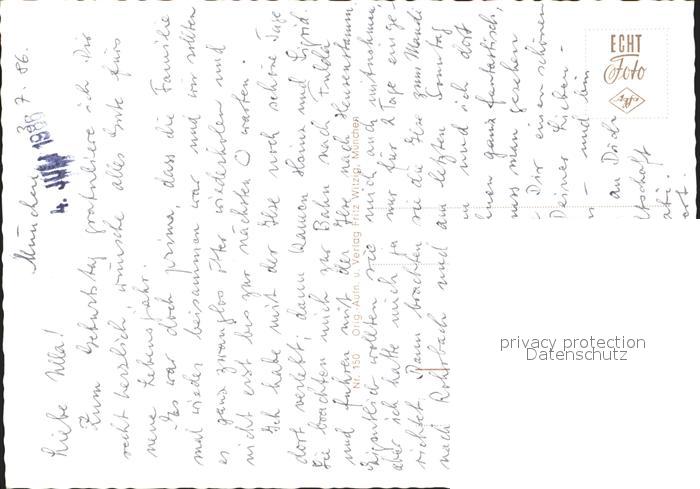 München, 3.7.86.
4. JULI 1986
Liebe Ulla!
Zum Geburtstag gratuliere ich Dir
recht herzlich, wünsche alles Gute fürs
neue Lebensjahr.
Es war doch prima, dass die Familie
mal wieder beisammen war und wir sollten
es ganz zwanglos öfter wiederholen und
nicht erst bis zur nächsten O warten.
Ich habe mit der Ilse noch schöne Tage
dort verlebt, dann kamen Heinz und Sigrid.
Sie brachten mich zur Bahn nach Fulda
und fuhren mit der Ilse nach Heusenstamm.
Eigentlich wollten sie mich auch mitnehmen
aber ich hatte mich ja nur für 8 Tage einge-
richtet. Dann brachten sie die Ilse zum Mandi
nach Rohrbach und am letzten Sonntag
und sich dort
ganz fantastisch,
muss man gesehen
Dir einen schönen
Deiner Lieben -
- und bin
an Dich
Nr. 150 Orig.-Aufn. u. Verlag Fritz Witzig, München
ECHT
Foto
Agfa
privacy protection
Datenschutz